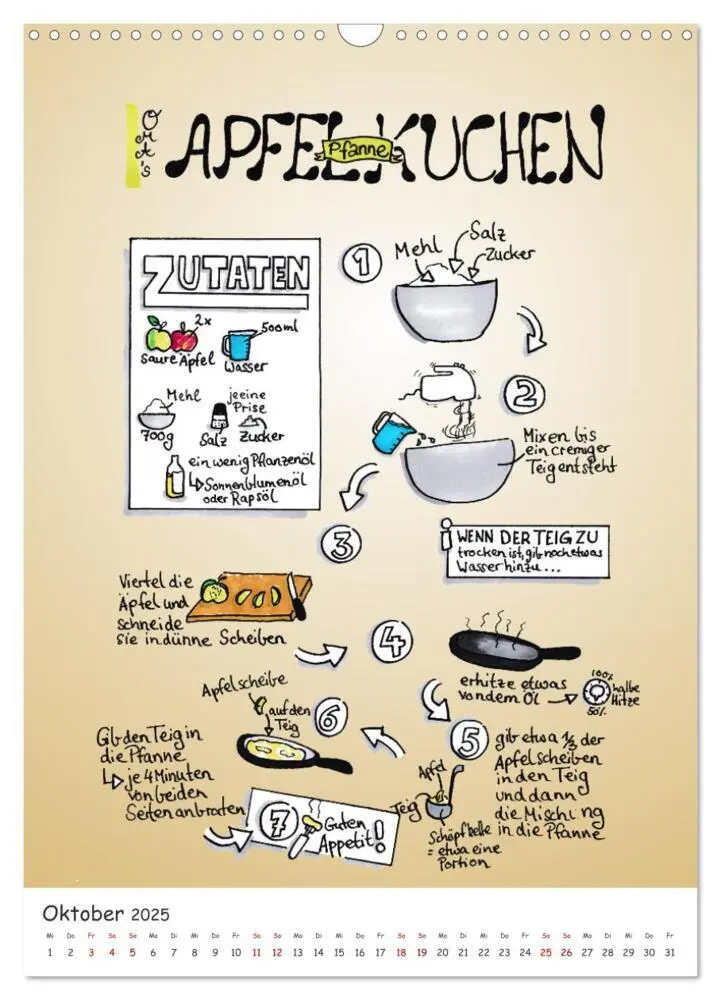 OMA's
APFEL KUCHEN
Pfanne
ZUTATEN
2x
saure Äpfel
500ml
Wasser
Mehl
700g
je eine
Prise
Salz
Zucker
ein wenig Pflanzenöl
Sonnenblumenöl
oder Rapsöl
1
Mehl
Salz
Zucker
2
Mixen bis
ein cremiger
Teig entsteht
i
WENN DER TEIG ZU
trocken ist, gib noch etwas
Wasser hinzu...
3
Viertel die
Äpfel und
schneide
sie in dünne Scheiben
4
erhitze etwas
von dem Öl
100%
halbe
Hitze
50%
5
gib etwa 1/3 der
Apfelscheiben
in den Teig
und dann
die Mischung
in die Pfanne
Apfel
Teig
Schöpfkelle
= etwa eine
Portion
6
Apfelscheibe
auf den
Teig
Gib den Teig in
die Pfanne
je 4 Minuten
von beiden
Seiten anbraten
7
Guten
Appetit!
Oktober 2025
Mi Do Fr Sa So Mo Di Mi Do Fr Sa So Mo Di Mi Do Fr Sa So Mo Di Mi Do Fr Sa So Mo Di Mi Do Fr
1 2 3 4 5 6 7 8 9 10 11 12 13 14 15 16 17 18 19 20 21 22 23 24 25 26 27 28 29 30 31